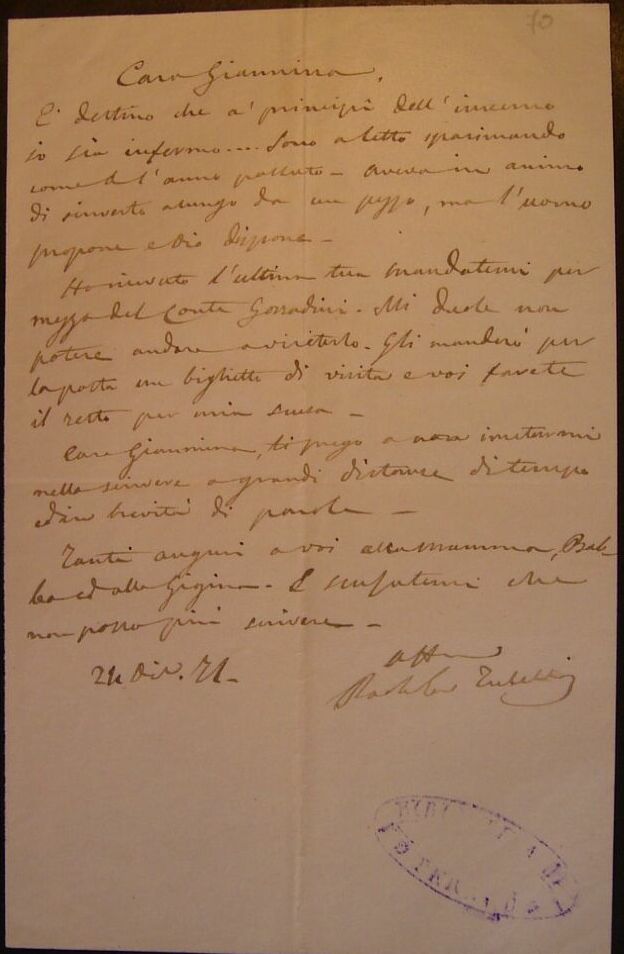 70
Cara Giannina,
E' destino che a' principi dell'inverno
io sia infermo.... Sono a letto spasimando
come l'anno passato - aveva in animo
di scriverti a lungo da un pezzo, ma l'uomo
propone e Dio dispone -
Ho ricevuto l'ultima tua mandatemi per
mezzo del Conte Gozzadini. Mi duole non
potere andare a visitarlo. Gli manderò per
la posta un biglietto di visita e voi farete
il resto per mia scusa -
Cara Giannina, ti prego a non imitarmi
nello scrivere a grandi distanze di tempo
ed in brevità di parole -
Tanti auguri a voi alla mamma,
ed alla Gigina. E scusatemi che
non posso più scrivere -
24 Dic. 71-
affmo